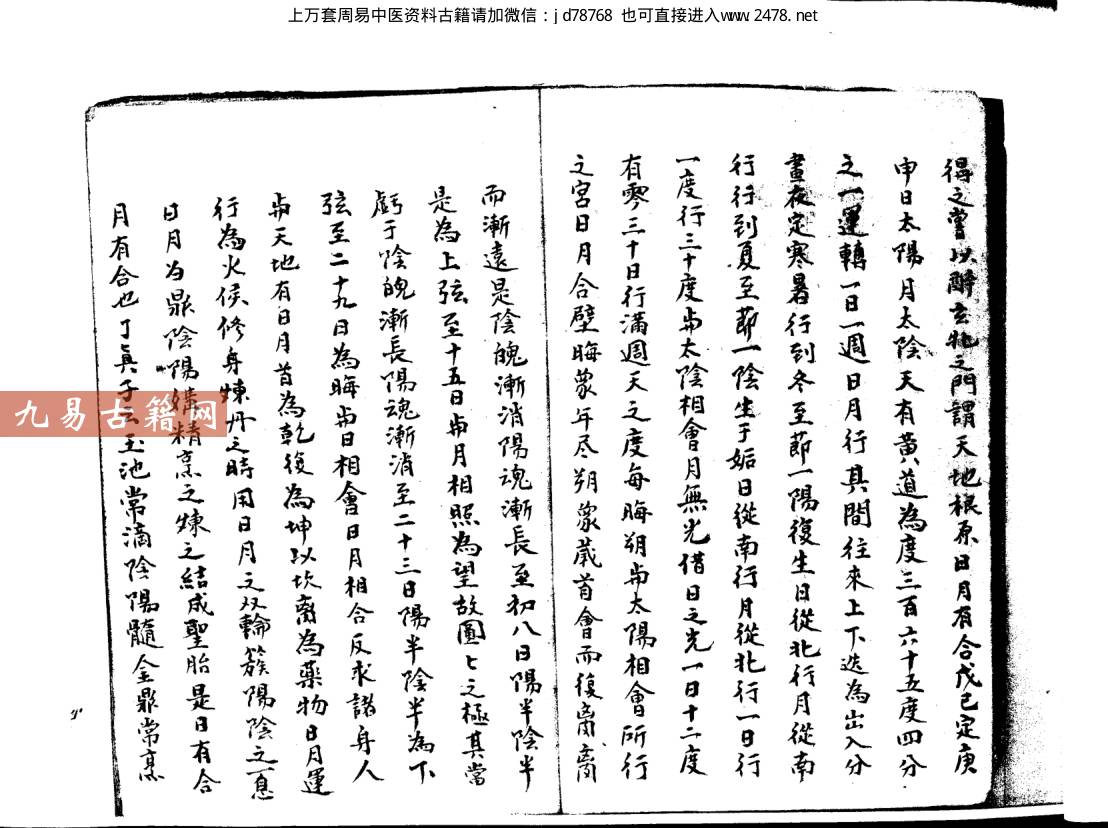 上万套周易中医资料古籍请加微信：jd78768 也可直接进入www.2478.net
得之嘗以辭玄牝之門謂天地根原日月有合戊己定庚
申日太陽月太陰天有黄道為度三百六十五度四分
之一運轉一日一週日月行其間往來上下迭為出入分
晝夜定寒暑行到冬至節一陽復生日從北行月從南
行行到夏至節一陰生于姤日從南行月從北行一日行
一度行三十度与太陰相會月無光借日之光一日十二度
有零三十日行滿週天之度每晦朔与太陽相會所行
之宮日月合璧晦蒙年尽朔蒙歲首會而復离离
而漸遠是陰魄漸消陽魂漸長至初八日陽半陰半
是為上弦至十五日与月相照為望故圓圓之極其當
虧于陰魄漸長陽魂漸消至二十三日陽半陰半為下
弦至二十九日為晦与日相會日月相合反求諸身人
与天地有日月首為乾後為坤以坎离為藥物日月運
行為火侯修身煉丹之時用日月之双輪簇陽陰之一息
日月为鼎陰陽媾精烹之煉之結成聖胎是日有合
月有合也丁真子云玉池常滴陰陽髓金鼎常烹
九易古籍网